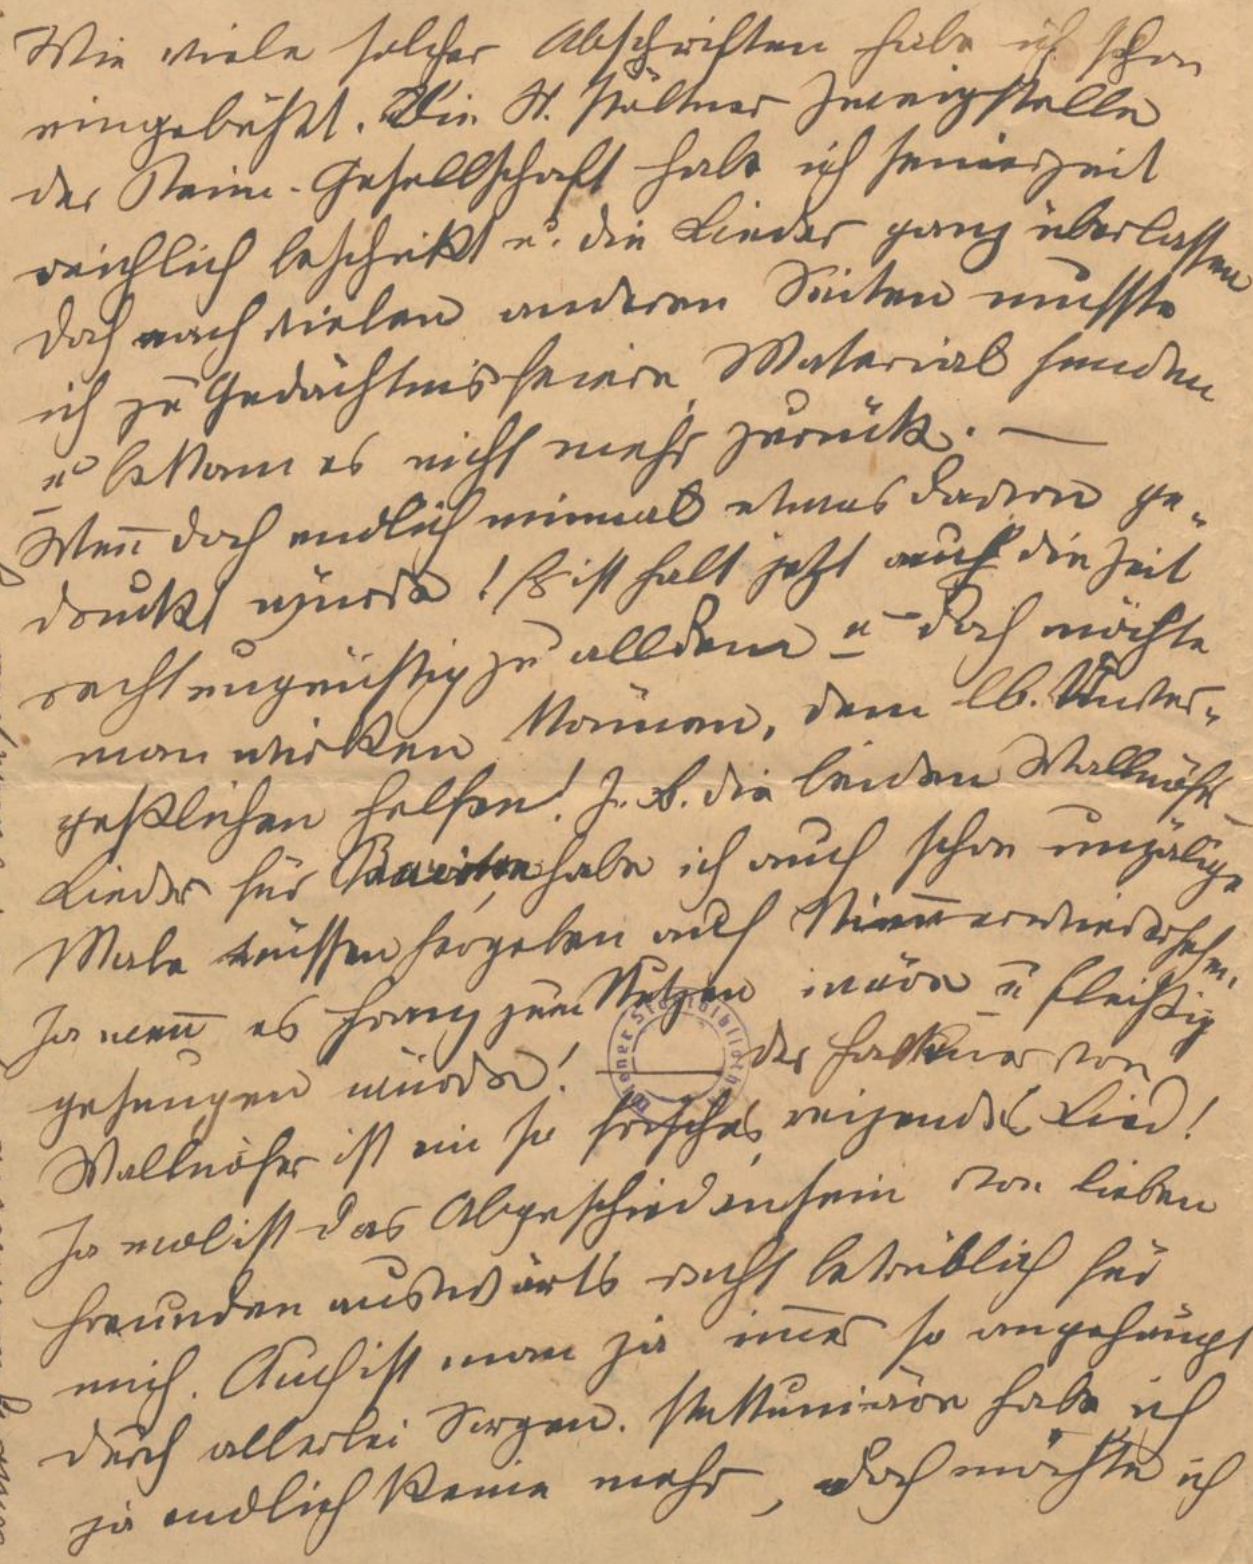 Wie viele solcher Abschriften habe ich schon
eingebüßt. Die St. Pöltner Zweigstelle
der Reim-Gesellschaft habe ich seinerzeit
reichlich beschickt u. die Lieder ganz überlassen
doch nach vielen anderen Seiten musste
ich zu Gedächtnisfeiern Material senden
u bekam es nicht mehr zurück. —
Wenn doch endlich einmal etwas davon ge-
druckt würde! Es ist halt jetzt auch die Zeit
recht ungünstig zu alldem u doch möchte
man wirken können, dem lb. Unver-
geßlichen helfen! Z. B. die beiden Wallnöfer
Lieder für habe ich auch schon unzälige
Male müssen hergeben auf Nimmerwiedersehn.
Ja wenn es Franz zum Nutzen wäre u fleißig
gesungen würde! — der Falkner von
Wallnöfer ist ein so frisches, reizendes Lied!
Ja wol ist das Abgeschiedensein von lieben
Freunden auswärts recht betrüblich für
mich. Auch ist man ja immer so angehängt
durch allerlei Sorgen. Pekuniäre habe ich
ja endlich keine mehr, doch möchte ich
Wiener Stadtbibliothek